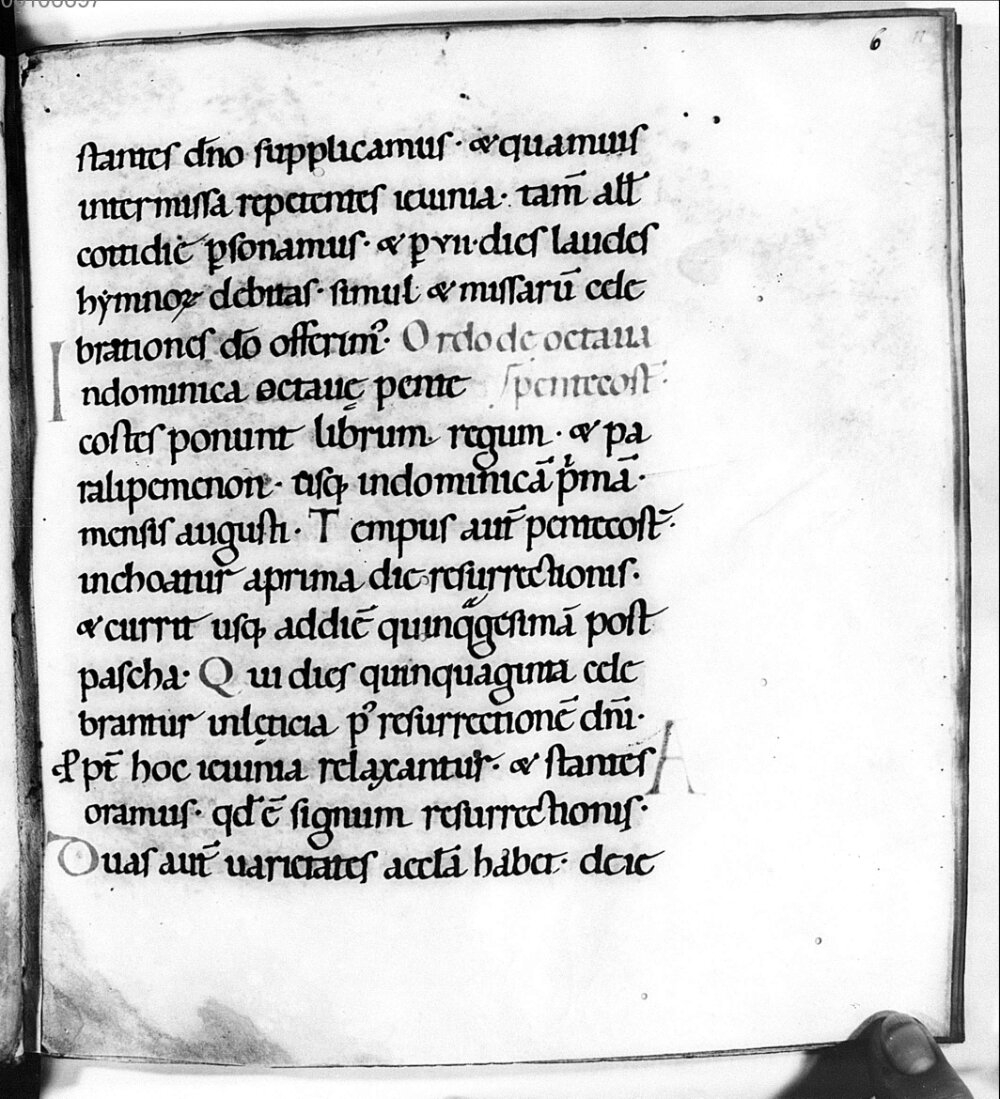 6
stantes dño supplicamus · & quamuis
intermissa repetentes ieiunia · tam̄ all̄
cottidie p̱sonamus · & p̱ vii · dies laudes
hẏmnoꝝ debitas · simul & missarū cele
brationes dō offerimꝰ · Ordo de octaua
Indominica octauę pente pentecost̄ ·
costes ponunt librum regum · & pa
ralipemenon · usq; indominicā p̓mā ·
mensis augusti · Tempus aut̄ pentecost̄ ·
inchoatur aprima die resurrectionis ·
& currit usq; addiē quinq̈gesimā post
pascha · Qui dies quinquaginta cele
brantur inleticia pꝰ resurrectionē dn̄i ·
ꝓpt̄ hoc ieiunia relaxantur · & stantes
oramus · qd̄ ē signum resurrectionis ·
Duas aut̄ uarietates aeccl̄a habet · deie